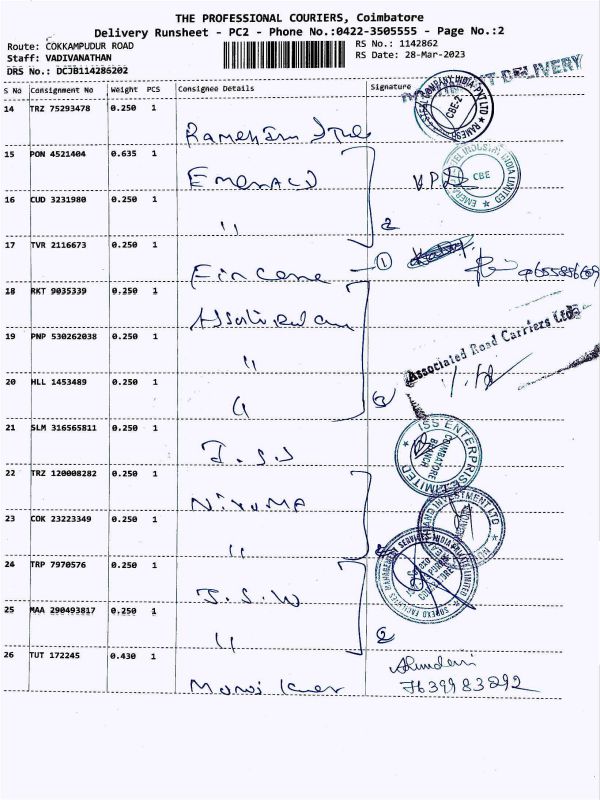 THE PROFESSIONAL COURIERS, Coimbatore
Delivery Runsheet - PC2 - Phone No.:0422-3505555 - Page No.:2
Route: COKKAMPUDUR ROAD
RS No.: 1142862
Staff: VADIVANATHAN
RS Date: 28-Mar-2023
DRS No.: DCJB114286202
S No Consignment No Weight PCS Consignee Details Signature
DELIVERY
14 TRZ 75293478 0.250 1
CBE-2
15 PON 4521404 0.635 1
Emerald
V.P.D
CBE
16 CUD 3231980 0.250 1
"
2
17 TVR 2116673 0.250 1
1
18 RKT 9035339 0.250 1
19 PNP 530262038 0.250 1
"
Associated Road Carriers Ltd.
20 HLL 1453489 0.250 1
"
3
21 SLM 316565811 0.250 1
ISS ENTERPRISE LIMITED
COIMBATORE BRANCH
22 TRZ 120008282 0.250 1
23 COK 23223349 0.250 1
"
24 TRP 7970576 0.250 1
25 MAA 290493817 0.250 1
"
2
26 TUT 172245 0.430 1
7639983292